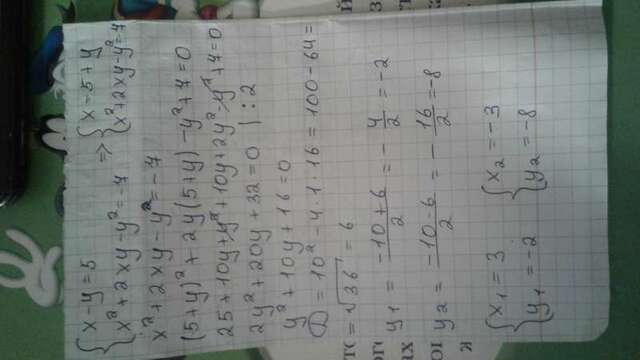 { x-y=5
{ x²+2xy-y²=-4 ⇒ { x=5+y
{ x²+2xy-y²=-4
x²+2xy-y²=-4
(5+y)²+2y(5+y)-y²+4=0
25+10y+y²+10y+2y²-y²+4=0
2y²+20y+32=0 | :2
y²+10y+16=0
D=10²-4·1·16=100-64=
=√36=6
y₁ = (-10+6)/2 = -4/2 = -2
y₂ = (-10-6)/2 = -16/2 = -8
{ x₁=3 { x₂=-3
{ y₁=-2 { y₂=-8